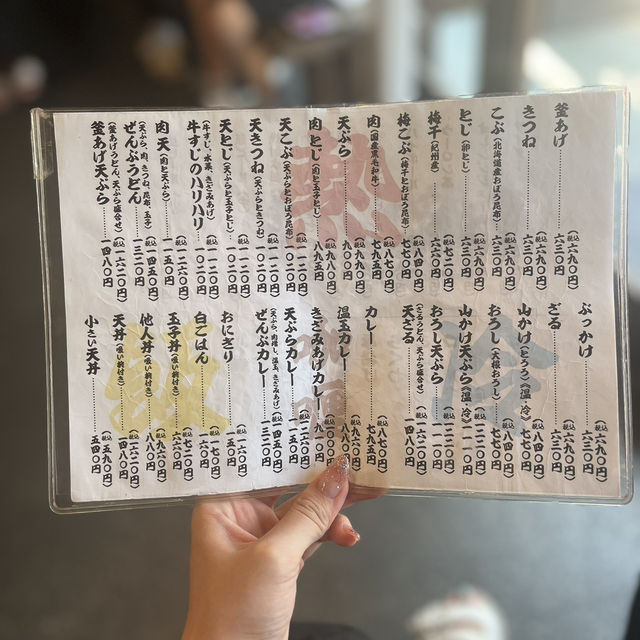 釜あげ……六三〇円(税込六九〇円)
きつね……六三〇円(税込六九〇円)
こぶ(北海道産おぼろ昆布)……六三〇円(税込六九〇円)
とじ(卵とじ)……六三〇円(税込六九〇円)
梅干(紀州産)……六六〇円(税込七二〇円)
梅こぶ(梅干とおぼろ昆布)……七七〇円(税込八四〇円)
肉(国産黒毛和牛)……七九五円(税込八七〇円)
天ぷら……九〇〇円(税込九九〇円)
肉とじ(肉と玉子とじ)……八九五円
天こぶ(天ぷらとおぼろ昆布)……一〇二〇円(税込一一二〇円)
天きつね(天ぷらときつね)……一〇二〇円(税込一一二〇円)
天とじ(天ぷらと玉子とじ)……一〇二〇円(税込一一二〇円)
牛すじのハリハリ
(牛すじ、水菜、きざみあげ)……一〇二〇円(税込一一二〇円)
肉天(肉と天ぷら)……一一五〇円(税込一二六〇円)
ぜんぶうどん
(天ぷら、肉、きつね、昆布、玉子)……一三二〇円(税込一四五〇円)
釜あげ天ぷら
(釜あげうどん、天ぷら盛合せ)……一四八〇円(税込一六二〇円)
熱
ぶっかけ……六三〇円(税込六九〇円)
ざる……六三〇円(税込六九〇円)
山かけ(とろろ)《温・冷》……七七〇円(税込八四〇円)
おろし(大根おろし)……七七〇円(税込八四〇円)
山かけ天ぷら《温・冷》……一一一〇円(税込一二二〇円)
おろし天ぷら
天ざる
(ざるうどん、天ぷら盛合せ)
冷
カレー……七九五円(税込八七〇円)
温玉カレー
きざみあげカレー
天ぷらカレー
ぜんぶカレー
(天ぷら、肉増し、温玉、きざみあげ)……一三二〇円(税込一四五〇円)
おにぎり……一五〇円(税込一六〇円)
白ごはん……一六〇円(税込一七〇円)
玉子丼(吸い物付き)……六六〇円(税込七二〇円)
他人丼(吸い物付き)……八八〇円(税込九六〇円)
天丼(吸い物付き)
小さい天丼……五四〇円(税込五九〇円)
飯